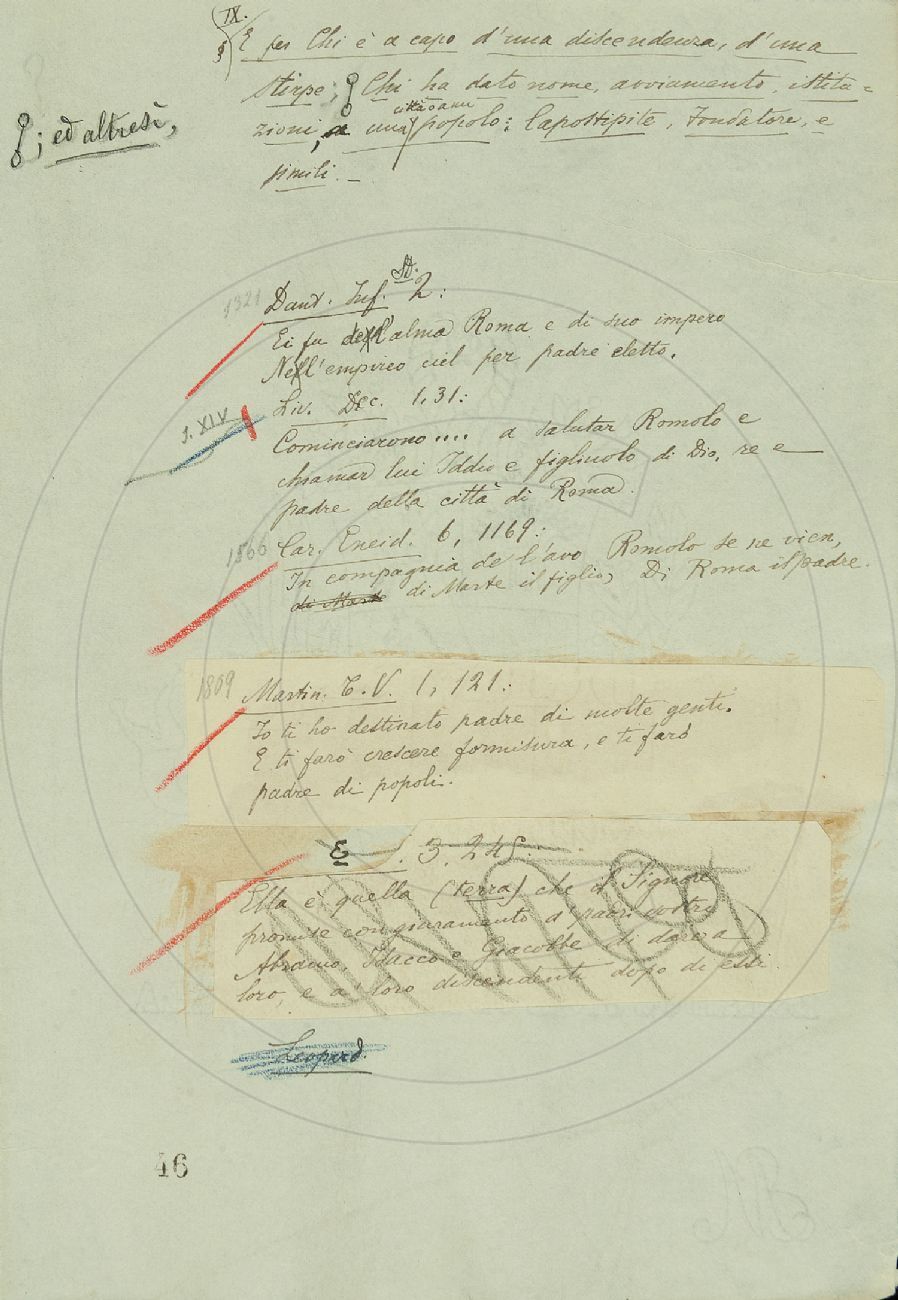 IX.
§ E per Chi è a capo d'una discendenza, d'una
stirpe; Chi ha dato nome, avviamento, istitu=
; ed altresì,
cittadanu
zioni, a una popolo: Capostipite, Fondatore, e
simili. –
St.
1321 Dant. Inf. 2:
Ei fu dell'alma Roma e di suo impero
Nell'empireo ciel per padre eletto.
s. XIV Liv. Dec. 1, 31:
Cominciarono .... a salutar Romolo e
chiamar lui Iddio e figliuolo di Dio, re e
padre della città di Roma.
1566 Car. Eneid. 6, 1169:
In compagnia de l'avo Romolo se ne vien,
di Marte di Marte il figlio, Di Roma il padre.
1809 Martin. T. V. 1, 121:
Io ti ho destinato padre di molte genti.
E ti farò crescere formisura, e ti farò
padre di popoli.
E . 3. 245.
Ella è quella (terra) che il Signore
promise con giuramento a' padri vostri
Abramo, Isacco e Giacobbe di darla a
loro, e a' loro discendenti dopo di essi.
Leopard.
46